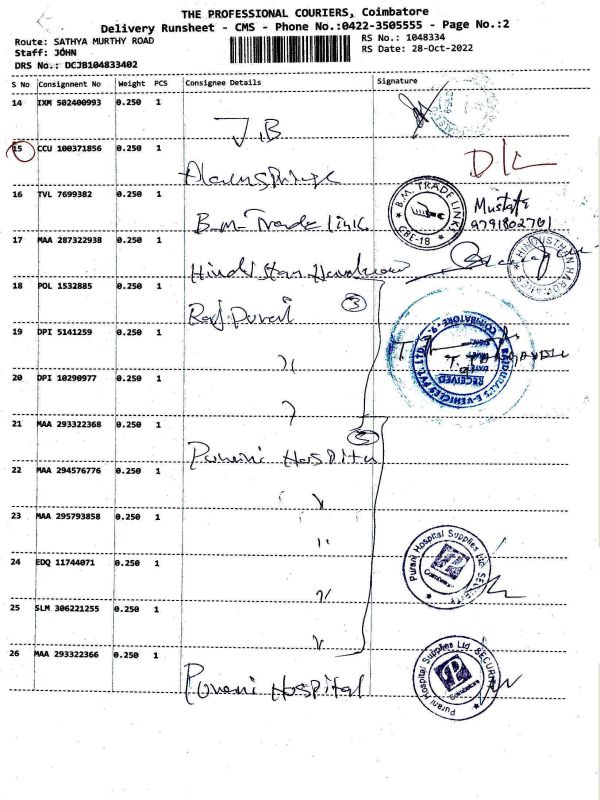 THE PROFESSIONAL COURIERS, Coimbatore
Delivery Runsheet - CMS - Phone No.:0422-3505555 - Page No.:2
Route: SATHYA MURTHY ROAD
Staff: JOHN
DRS No.: DCJB104833402
RS No.: 1048334
RS Date: 28-Oct-2022
S No Consignment No Weight PCS Consignee Details Signature
14 IXM 502400993 0.250 1 J.B
15 CCU 100371856 0.250 1 D/L
16 TVL 7699382 0.250 1 B.M. Trade Link
B.M. TRADE LINK
CBE-18
9791802761
17 MAA 287322938 0.250 1
18 POL 1532885 0.250 1 3
19 DPI 5141259 0.250 1 〃
RECEIVED
DATE
20 DPI 10290977 0.250 1 〃
21 MAA 293322368 0.250 1 Purani Hospital
22 MAA 294576776 0.250 1 〃
23 MAA 295793858 0.250 1 〃
24 EDQ 11744071 0.250 1 〃
Purani Hospital Supplies Ltd. SECURITY
Coimbatore
25 SLM 306221255 0.250 1 〃
26 MAA 293322366 0.250 1 Purani Hospital
Purani Hospital Supplies Ltd. SECURITY
Coimbatore